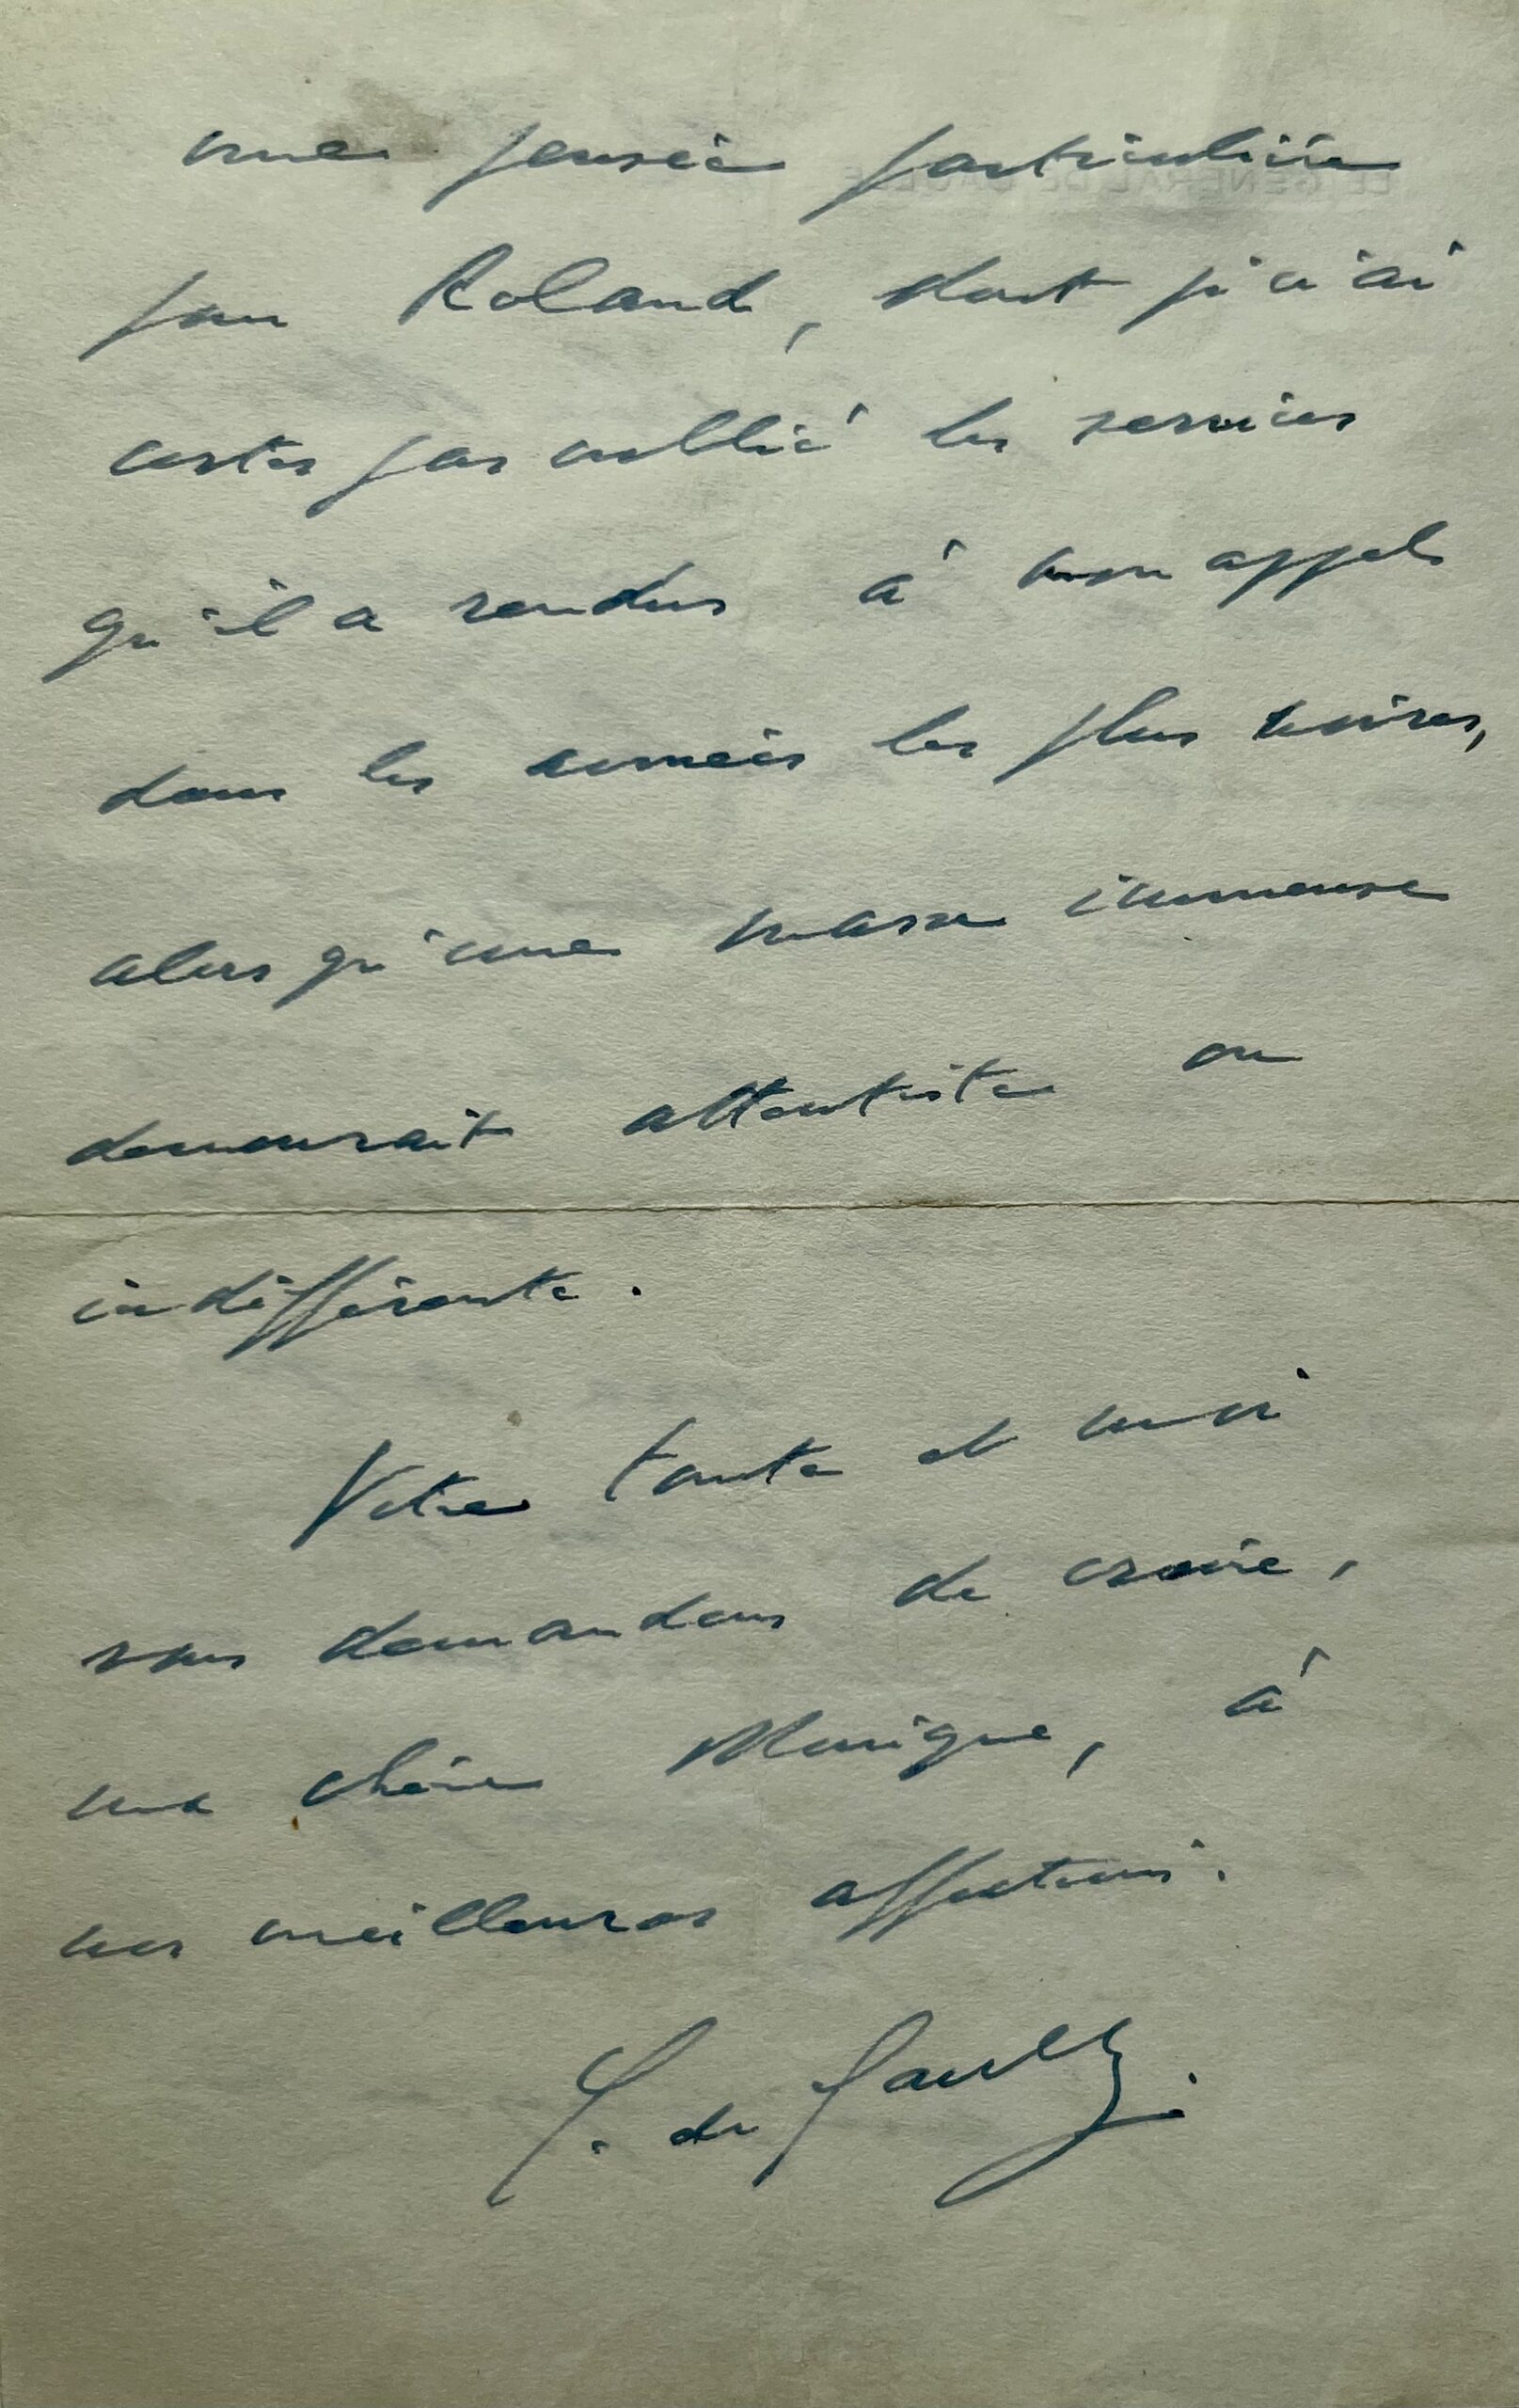 une pensée particulière
pour Roland, dont je n'ai
certes pas oublié les services
qu'il a rendus à mon appel
dans les années les plus noires,
alors qu'une masse immense
demeurait attentiste ou
indifférente.
Votre tante et moi
vous demandons de croire,
ma chère Monique, à
nos meilleures affections.
C. de Gaulle.